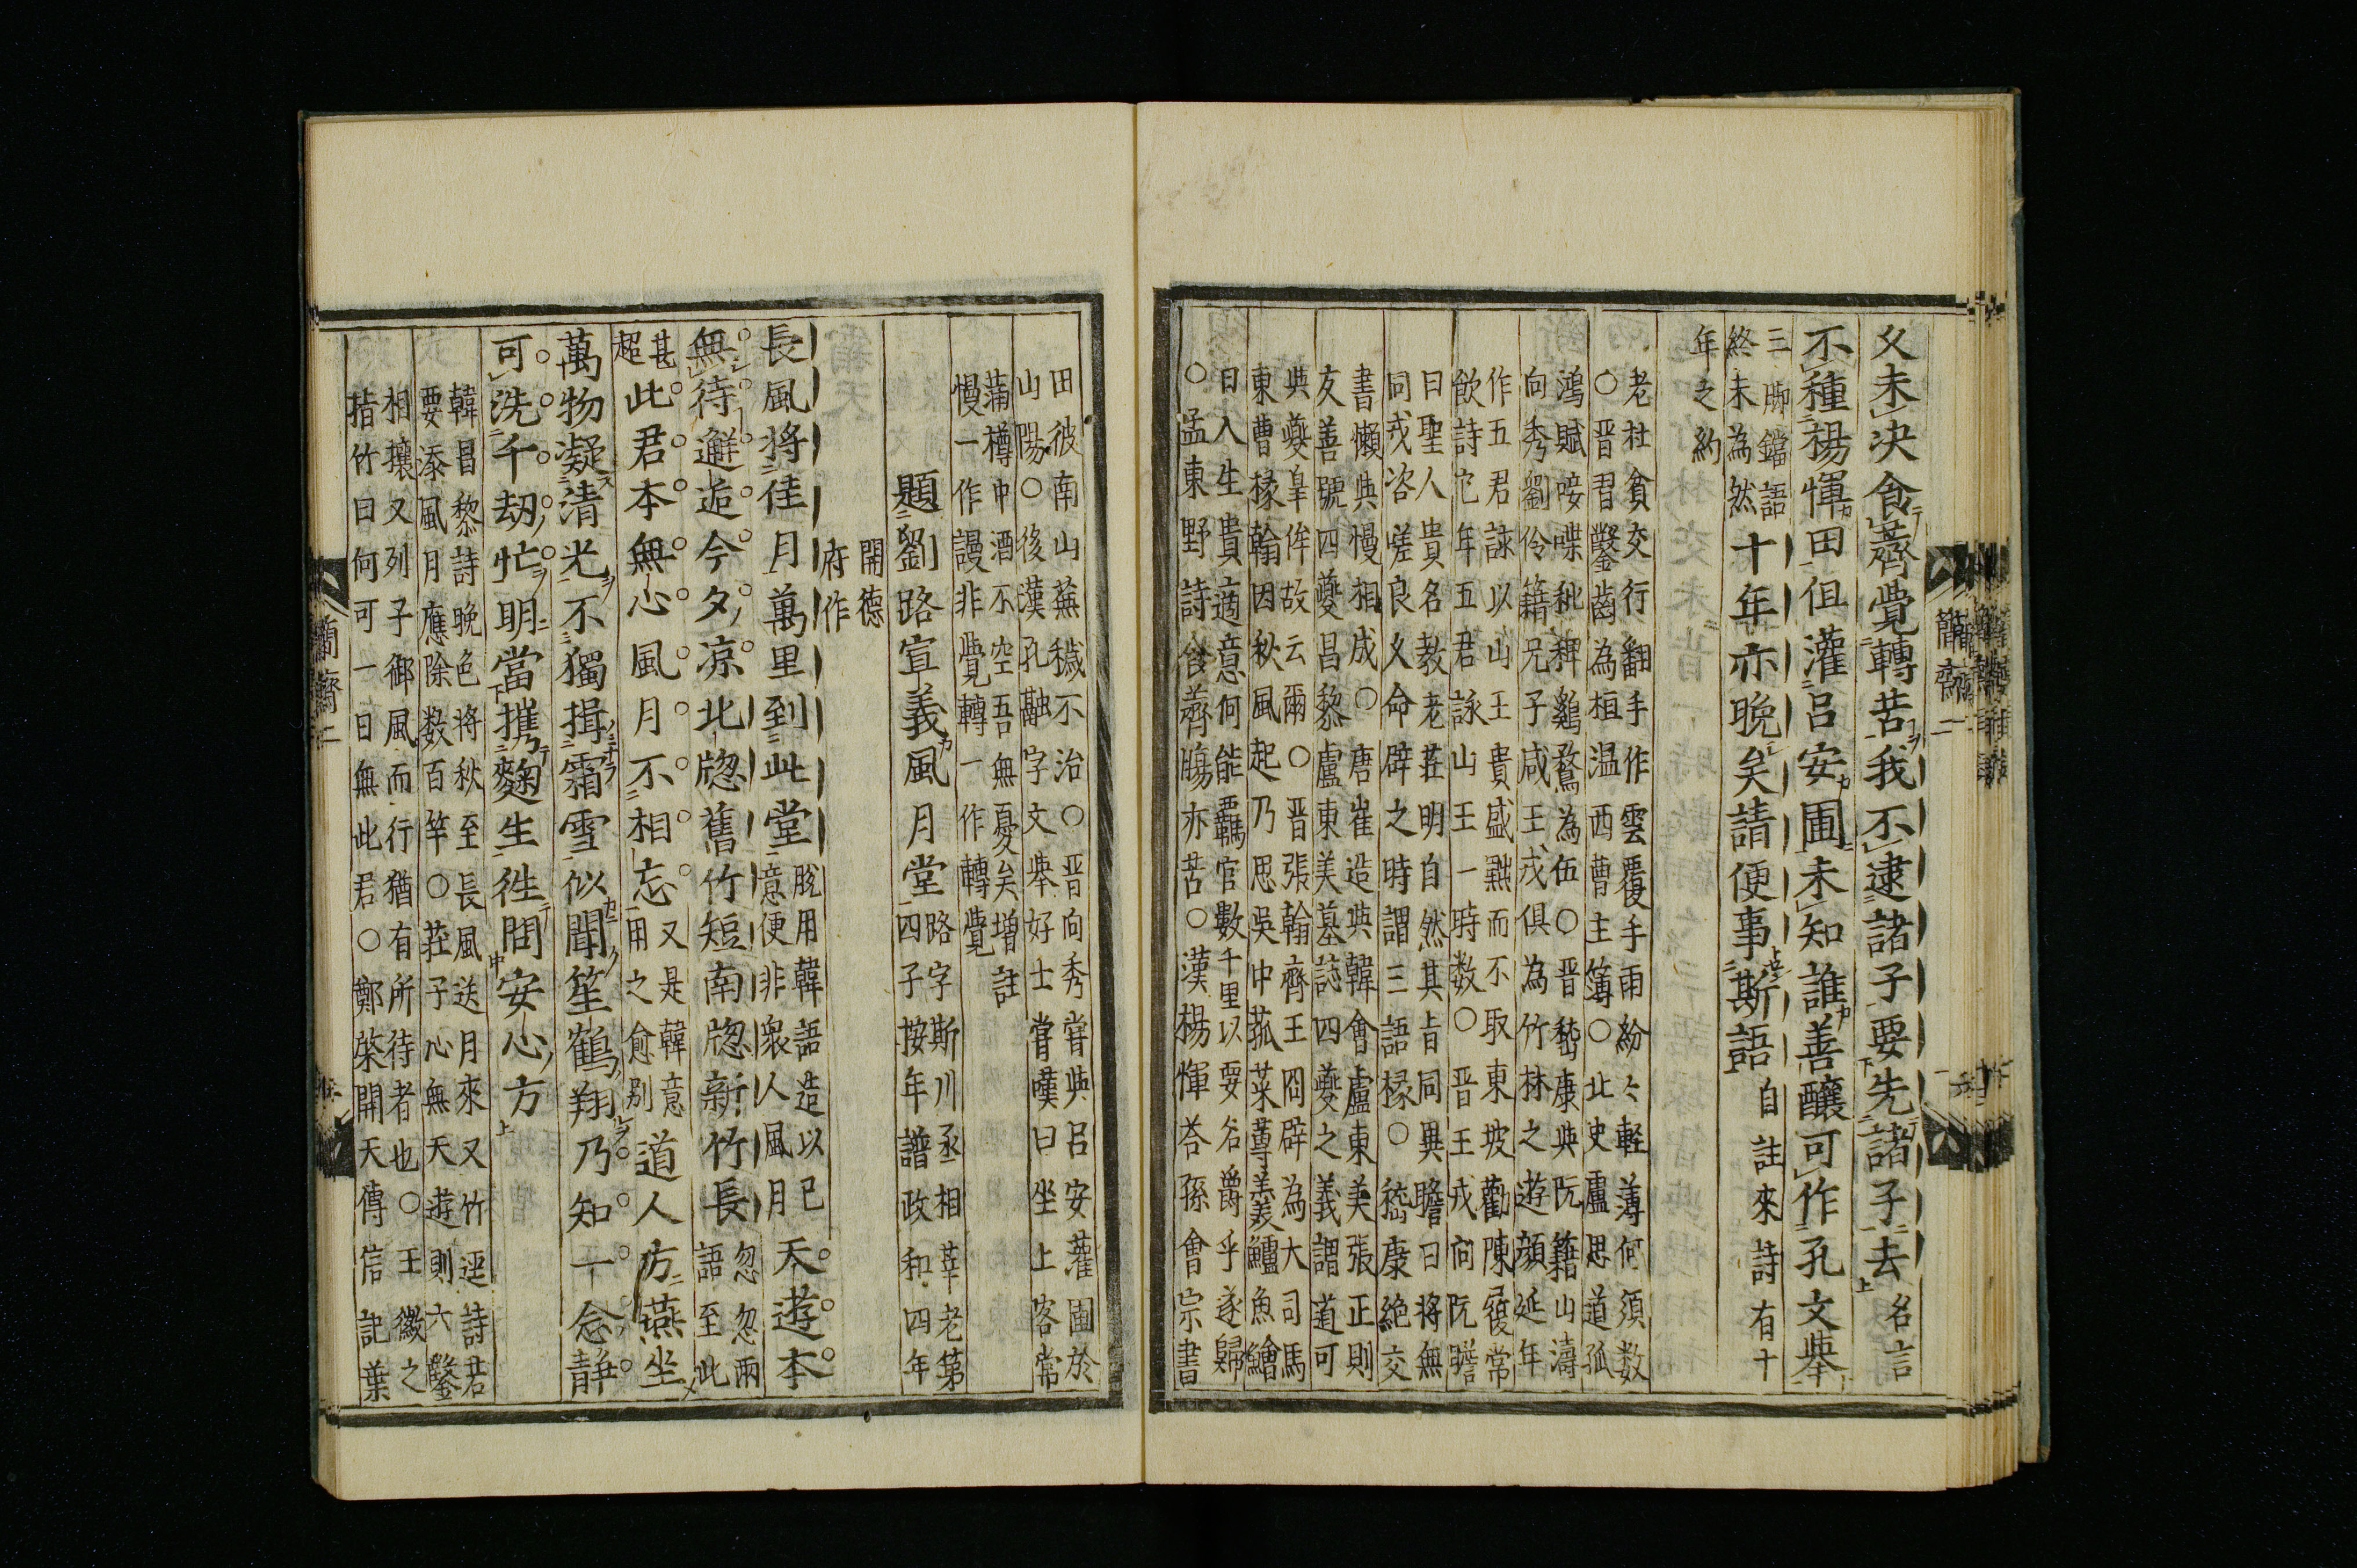 久未决食薺覺轉苦我不逮諸子要先諸子去名言
不種楊惲田但灌呂安圃未知誰善釀可作孔文舉
三腳鐺語
終未為然十年亦晚矣請便事斯語自註來詩有十
年之約
老杜貧交行翻手作雲覆手雨紛々輕薄何須数
○晋習鑿齒為桓温西曹主簿○北史盧思道孤
鴻賦唼喋粃稗鷄鶩為伍○晋嵇康與阮籍山濤
向秀劉伶籍兄子咸王戎俱為竹林之遊顔延年
作五君詠以山王貴盛黜而不取東坡勸陳履常
飲詩它年五君詠山王一時数○晋王戎問阮瞻
曰聖人貴名教老莊明自然其旨同異瞻曰将無
同戎咨嗟良久命辟之時謂三語掾○嵇康絶交
書懶與慢相成○唐崔造與韓會盧東美張正則
友善號四夔昌黎盧東美墓誌四夔之義謂道可
與夔皐侔故云爾○晋張翰齊王冏辟為大司馬
東曹掾翰因秋風起乃思吳中菰菜蓴羹鱸魚鱠
曰人生貴適意何能覊官數千里以要名爵乎遂歸
○孟東野詩食薺膓亦苦○漢楊惲荅孫會宗書
簡齋二
田彼南山蕪穢不治○晋向秀嘗與呂安灌圃於
山陽○後漢孔融字文舉好士嘗嘆曰坐上客常
蒲樽中酒不空吾無憂矣増註
慢一作謾非覺轉一作轉覺
題劉路宣義風月堂路字斯川丞相莘老第
四子按年譜政和四年
開德
府作
長風将佳月萬里到此堂脫用韓語造以已
意便非衆人風月天遊本
無待邂逅今夕凉北牕舊竹短南牕新竹長忽忽兩
語至此
甚
超此君本無心風月不相忘又是韓意
用之愈别道人方燕坐
萬物凝清光不獨揖霜雪似聞笙鶴翔乃知一念静
可洗千刼忙明當攜麴生徃問安心方
韓昌黎詩晚色将秋至長風送月來又竹逕詩若
要添風月應除数百竿○莊子心無天遊則六鑿
相攘又列子御風而行猶有所待者也○王徽之
指竹曰何可一日無此君○鄭棨開天傳信記葉
簡齋二